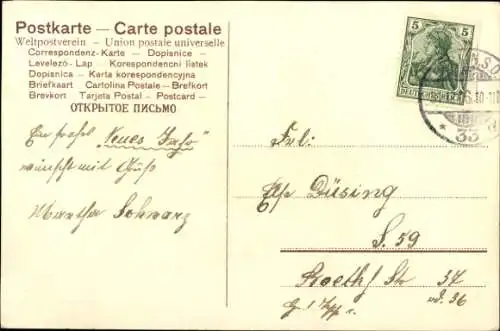 Postkarte — Carte postale
Weltpostverein — Union postale universelle
Correspondenz-Karte — Dopisnice —
Levelező-Lap — Korespondencni listek
Dopisnica — Karta korespondencyjna
Briefkaart — Cartolina Postale — Brefkort
Brevkort — Tarjeta Postal — Postcard —
ОТКРЫТОЕ ПИСЬМО
5 5
DEUTSCHES REICH
Ein frohes "Neues Jahr"
wünscht mit Gruß
Martha Schwarz
Frl.
Else Düsing
S. 59
Str 37
od. 36